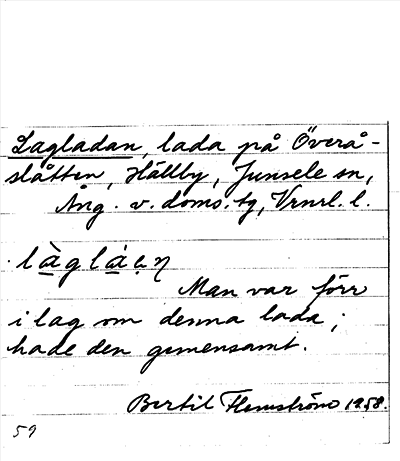 Lagladan, lada på Överå-
slåtten, Hällby, Junsele sn,
Ång. v. doms. tg, Vrnrl. l.
làglȧən
Man var förr
i lag om denna lada;
hade den gemensamt.
Bertil Flemström 1958.
59